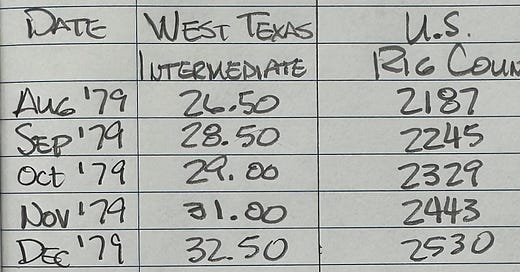 DATE WEST TEXAS U.S.
INTERMEDIATE RIG COUN
AUG '79 26.50 2187
SEP '79 28.50 2245
OCT '79 29.00 2329
NOV '79 31.00 2443
DEC '79 32.50 2530